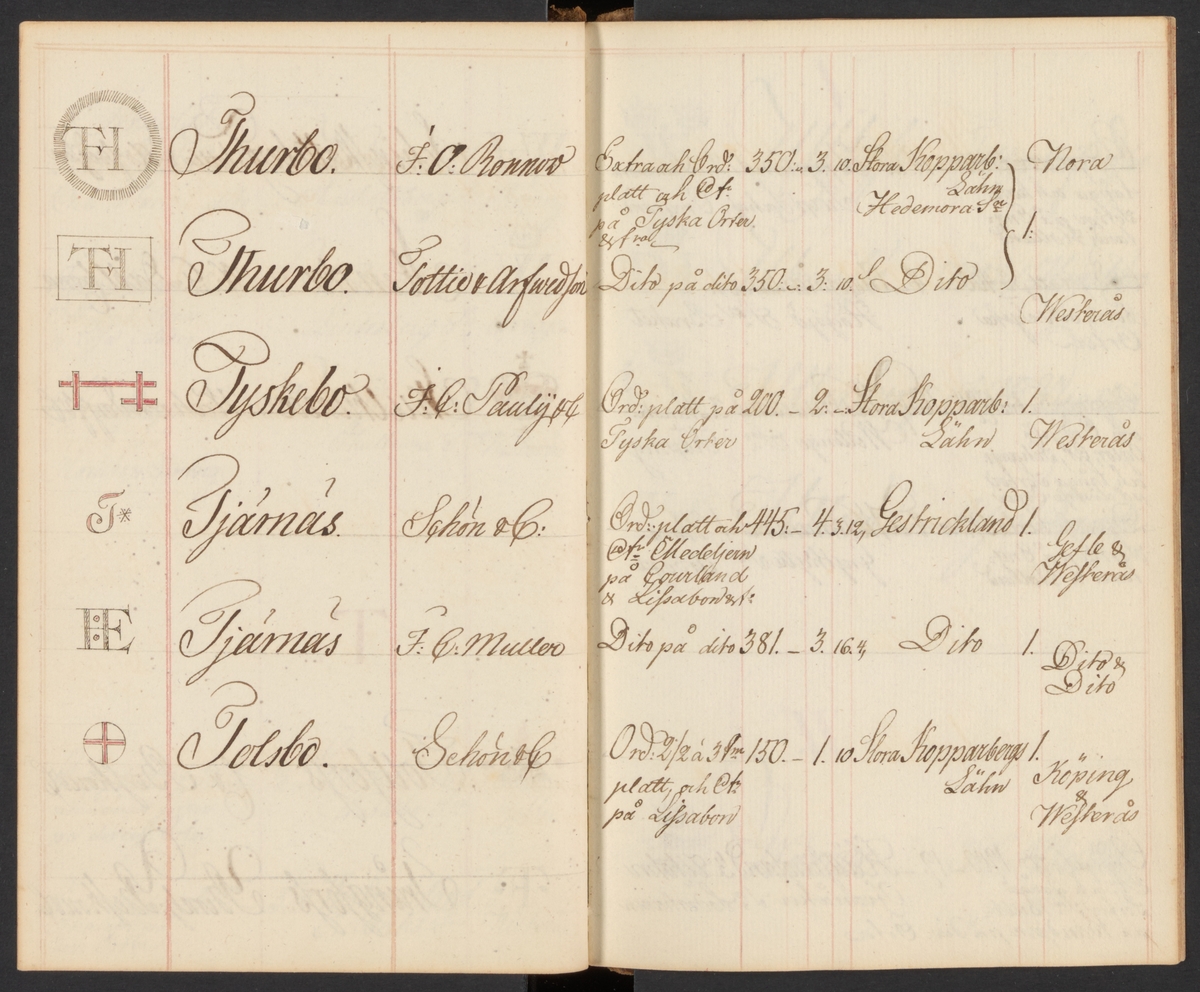 TH Thurbo. F. O: Ronnow Extra och Ord: 350:„ 3. 10. Stora Kopparb: Nora
platt och Lähn
på Tyska Orter Hedemora 1:
TH Thurbo. Tottie & Arfwedson Dito på dito 350. „ 3: 10. Dito
Westerås
Tyskebo. F. C: Pauly & C Ord: platt på 200. – 2. – Stora Kopparb: 1.
Tyska Orter Lähn Westerås
T* Tjärnäs. Schön & C: Ord: platt och 445: – 4. 3. 12, Gestrickland 1.
Medeljern Gefle &
på Courland Westerås
& Lissabon
Tjärnäs F: C: Muller Dito på dito 381. – 3. 16. 4, Dito 1.
Dito &
Dito
Tolsbo. Schön & C Ord: 2 1/2 à 3 150. – 1. 10 Stora Kopparbergs 1.
platt, och Lähn Köping
&
på Lissabon Westerås